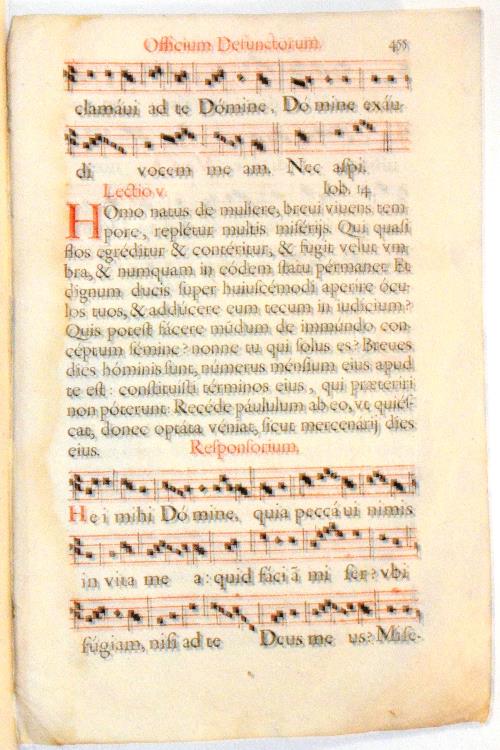 Officium Defunctorum. 455
clamáui ad te Dómine. Dó mine exáu-
di vocem me am. Nec aspi.
Lectio v. Iob. 14
HOmo natus de muliere, breui viuens tem
pore, replétur multis misérijs. Qui quasi
flos egréditur & contéritur, & fugit velut vm
bra, & numquam in eódem statu pérmanet Et
dignum ducis super huiuscémodi aperire ócu-
los tuos, & addúcere eum tecum in iudícium?
Quis potest fácere múdum de immúndo con-
céptum sémine? nonne tu qui solus es? Breues
dies hóminis sunt, númerus ménsium eius apud
te est: constituísti términos eius, qui præteríri
non póterunt. Recéde páululum ab eo, vt quiés-
cat, donec optáta véniat, sicut mercenárij dies
eius. Responsorium,
He i mihi Dó mine, quia peccá ui nimis
in vita me a: quid fáci ã mi ser? vbi
fúgiam, nisi ad te Deus me us? Mise-